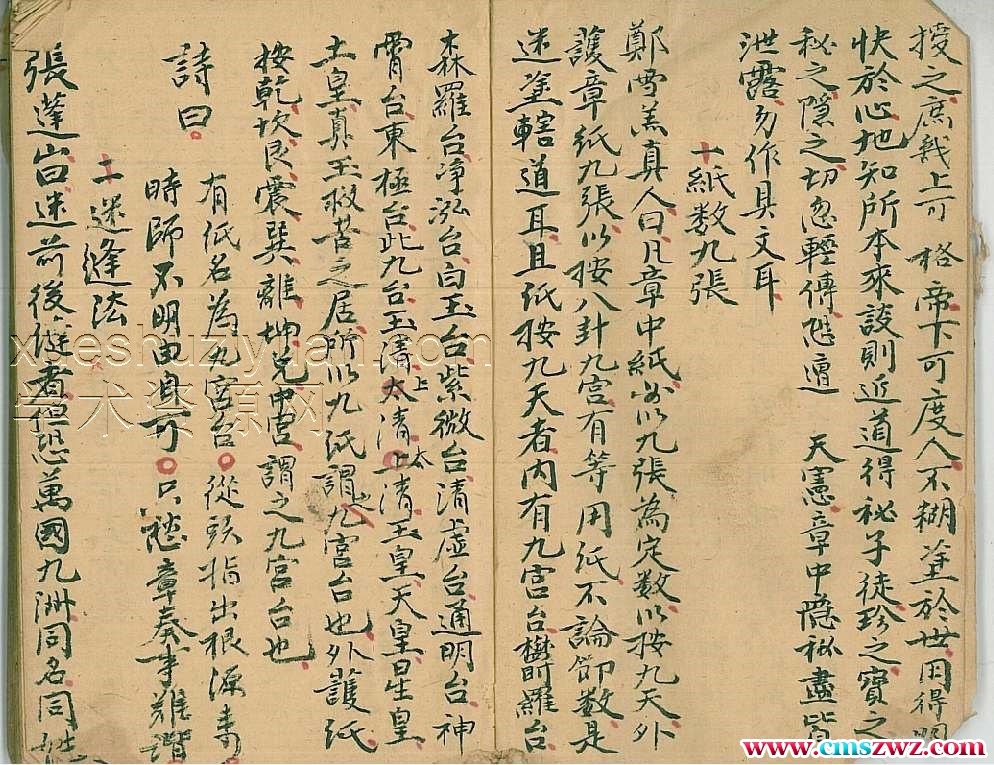 授之庶幾上可 格帝下可度人不糊塗於世用得明
快於心地知所本來談則近道得秘子徒珍之寶之
秘之隐之切忽輕傳愆遭 天憲章中隐秘盡皆
泄露勿作具文耳
十紙数九張
鄭雪羔真人曰凡章中紙必以九張為定数以按九天外
護章紙九張以按八卦九宫有等用紙不論節数是
迷塗轄道耳且纸按九天者内有九宫台欝羅台
森羅台净泓台白玉台紫微台清虚台通明台神
霄台東極台此九台玉清太上清上太清玉皇天皇星皇
土皇真王救苦之居所以九紙謂之九宫台也外護紙
按乾坎艮震巽離坤兑中宫謂之九宫台也
詩曰
有纸名為九宫台從頭指出根源
時師不明由自可只愁章奏事難谐
二迷缝法
張蓬山曰迷前後縫者但恐萬國九洲同名同姓
xueshuziyuan.com
学术资源网
www.cmszwz.com